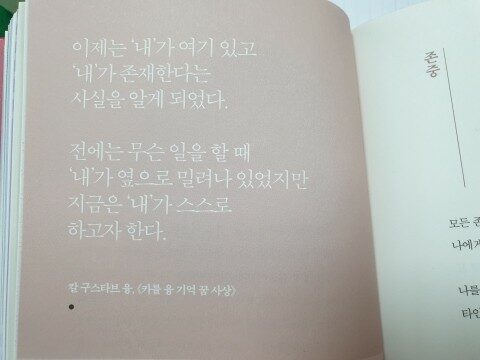 이제는 '내'가 여기 있고
'내'가 존재한다는
사실을 알게 되었다.
전에는 무슨 일을 할 때
'내'가 옆으로 밀려나 있었지만
지금은 '내'가 스스로
하고자 한다.
칼 구스타브 융, 《카를 융 기억 꿈 사상》
존중
모든 존
나에게
나를
타인